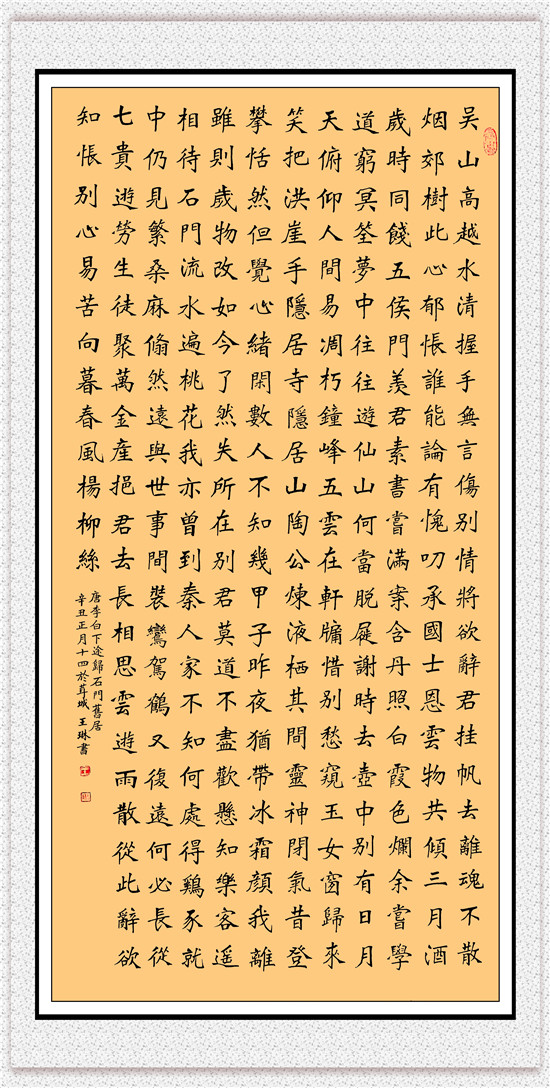 吴山高越水清握手無言傷別情將欲辭君挂帆去離魂不散
烟郊樹此心郁悵誰能論有愧叨承國士恩雲物共傾三月酒
歲時同餞五侯門羨君素書嘗滿案含丹照白霞色爛余嘗學
道窮冥筌夢中往往遊仙山何當脫屣謝時去壺中別有日月
天俯仰人間易凋朽鐘峰五雲在軒牖惜別愁窺玉女窗歸來
笑把洪崖手隱居寺隱居山陶公煉液栖其間靈神閉氣昔登
攀恬然但覺心緒閑數人不知幾甲子昨夜猶帶冰霜顏我離
雖則歲物改如今了然失所在別君莫道不盡歡懸知樂客遥
相待石門流水遍桃花我亦曾到秦人家不知何處得鷄豕就
中仍見繁桑麻翛然遠與世事間裝鸞駕鶴又復遠何必長從
七貴遊勞生徒聚萬金產挹君去長相思雲遊雨散從此辭欲
知悵別心易苦向暮春風楊柳絲
唐李白下途歸石門舊居
辛丑正月十四於葑城王琳書